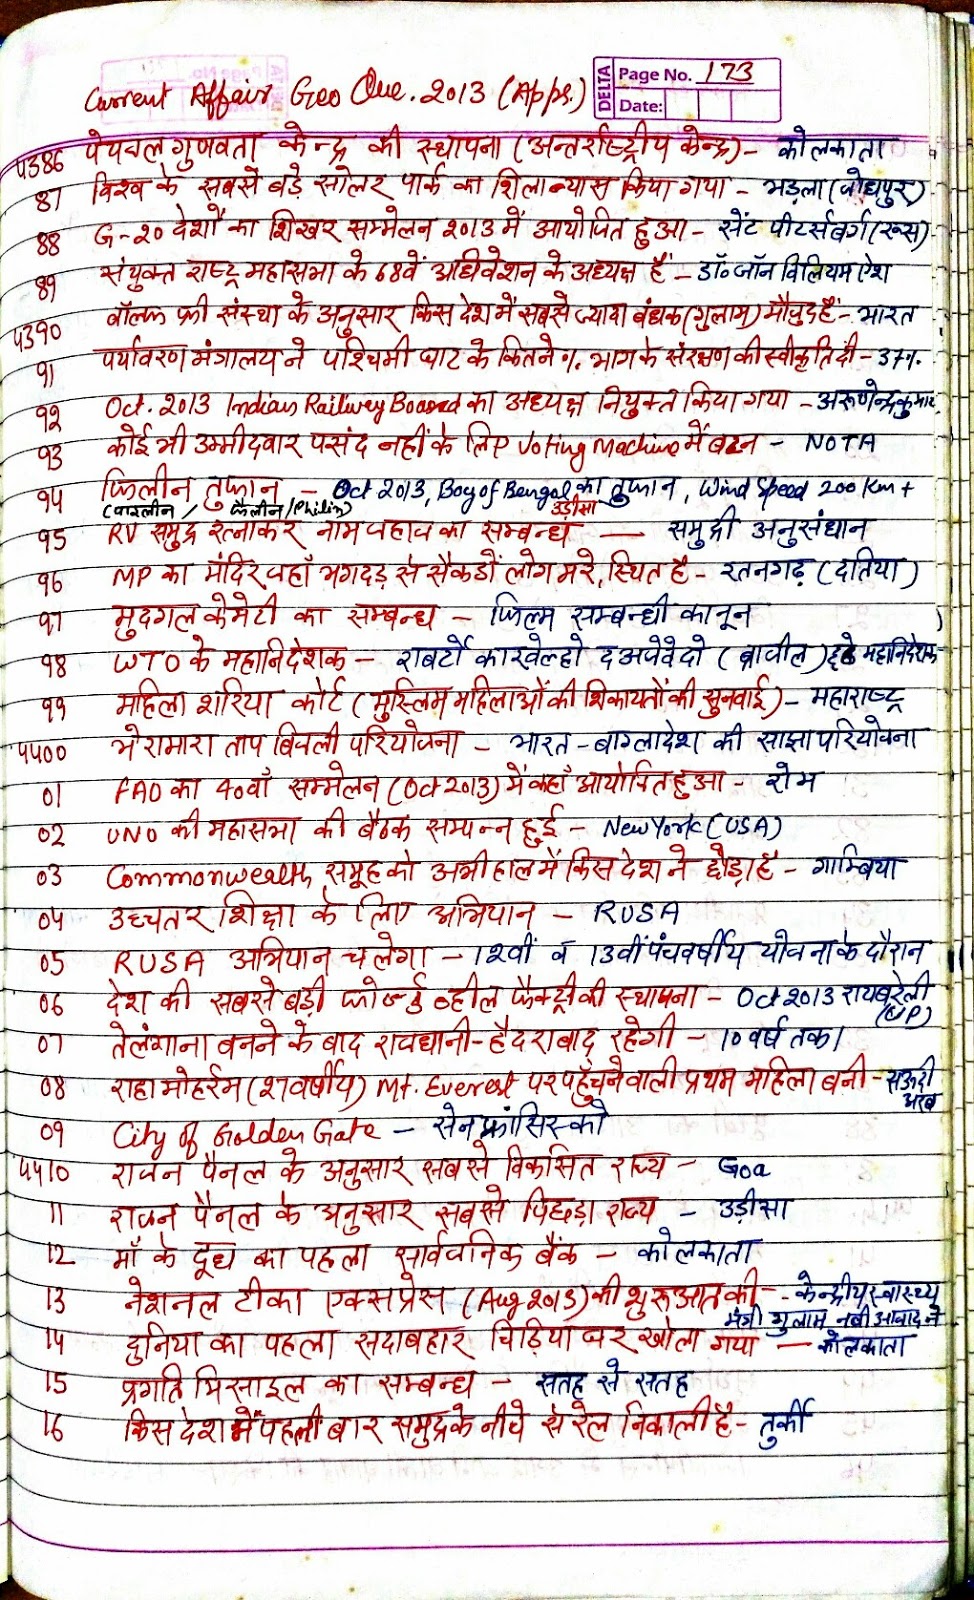 DELTA Page No. 173
Date:
Current Affair Geo Que. 2013 (Apps.)
4386 पेयजल गुणवता केन्द्र की स्थापना (अन्तर्राष्ट्रीय केन्द्र) - कोलकाता
87 विश्व के सबसे बड़े सोलर पार्क का शिलान्यास किया गया - भड़ला (जोधपुर)
88 G-20 देशों का शिखर सम्मेलन 2013 में आयोजित हुआ - सेंट पीटर्सबर्ग (रूस)
89 संयुक्त राष्ट्र महासभा के 68वें अधिवेशन के अध्यक्ष हैं - डॉ॰ जॉन विलियम ऐश
4390 वॉलक फ्री संस्था के अनुसार किस देश में सबसे ज्यादा बंधक (गुलाम) मौजुद हैं - भारत
91 पर्यावरण मंत्रालय ने पश्चिमी घाट के कितने % भाग के संरक्षण की स्वीकृति दी - 37%
92 Oct. 2013 Indian Railway Board का अध्यक्ष नियुक्त किया गया - अरूणेन्द्र कुमार
93 कोई भी उम्मीदवार पसंद नहीं के लिए Voting Machine में बटन - NOTA
94 फिलीन तुफान - Oct 2013, Bay of Bengal का तुफान, Wind Speed 200 Km+
(पाइलीन / फैलीन / Philin) उड़ीसा
95 RV समुद्र रत्नाकर नाम जहाज का सम्बन्ध — समुद्री अनुसंधान
96 MP का मंदिर जहाँ भगदड़ से सैकडों लोग मरे, स्थित है - रतनगढ़ (दतिया)
97 मुदगल कमेटी का सम्बन्ध - फिल्म सम्बन्धी कानून
98 WTO के महानिदेशक - राबर्टो कारवेल्हो द अजेवेदो (ब्राजील) महानिदेशक
99 महिला शरिया कोर्ट (मुस्लिम महिलाओं की शिकायतों की सुनवाई) - महाराष्ट्र
4400 भेरामारा ताप बिजली परियोजना - भारत-बांग्लादेश की साझा परियोजना
01 FAO का 40वाँ सम्मेलन (Oct 2013) में कहाँ आयोजित हुआ - रोम
02 UNO की महासभा की बैठक सम्पन्न हुई - New York (USA)
03 Commonwealth समूह को अभी हाल में किस देश ने छोड़ा है - गाम्बिया
04 उच्चतर शिक्षा के लिए अभियान - RUSA
05 RUSA अभियान चलेगा - 12वीं व 13वीं पंचवर्षीय योजना के दौरान
06 देश की सबसे बड़ी फोर्ज्ड व्हील फैक्ट्री की स्थापना - Oct 2013 रायबरेली
(UP)
07 तेलंगाना बनने के बाद राजधानी - हैदराबाद रहेगी - 10 वर्ष तक।
08 राहा मोहर्रम (27 वर्षीय) Mt. Everest पर पहुँचने वाली प्रथम महिला बनी - सऊदी
अरब
09 City of Golden Gate - सेन फ्रांसिस्को
4410 राजन पैनल के अनुसार सबसे विकसित राज्य - Goa
11 राजन पैनल के अनुसार सबसे पिछड़ा राज्य - उड़ीसा
12 माँ के दूध का पहला सार्वजनिक बैंक - कोलकाता
13 नेशनल टीका एक्सप्रेस (Aug 2013) की शुरूआत की - केन्द्रीय स्वास्थ्य
मंत्री गुलाम नबी आजाद ने
14 दुनिया का पहला सदाबहार चिड़िया घर खोला गया — कोलकाता
15 प्रगति मिसाइल का सम्बन्ध - सतह से सतह
16 किस देश में पहली बार समुद्र के नीचे से रेल निकाली है - तुर्की